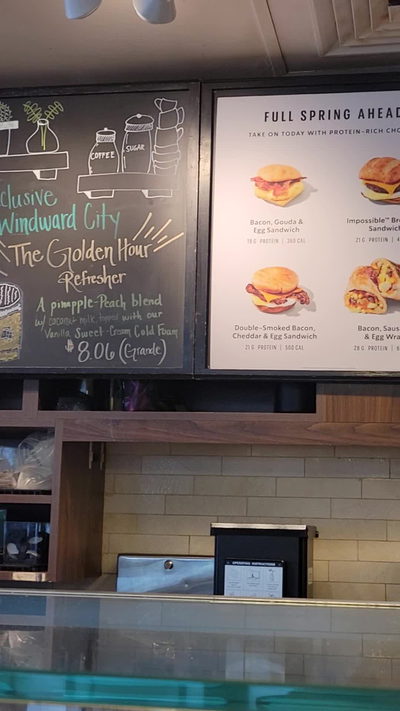 COFFEE
SUGAR
clusive
Windward City
The Golden Hour
Refresher
A pineapple-Peach blend
w/ coconut milk, topped with our
Vanilla Sweet-Cream Cold Foam
$8.06 (Grande)
FULL SPRING AHEAD
TAKE ON TODAY WITH PROTEIN-RICH CHO
Bacon, Gouda &
Egg Sandwich
18 G PROTEIN | 360 CAL
Impossible™ Bre
Sandwich
21 G PROTEIN | 4
Double-Smoked Bacon,
Cheddar & Egg Sandwich
21 G PROTEIN | 500 CAL
Bacon, Saus
& Egg Wra
28 G PROTEIN | 6
OPERATING INSTRUCTIONS